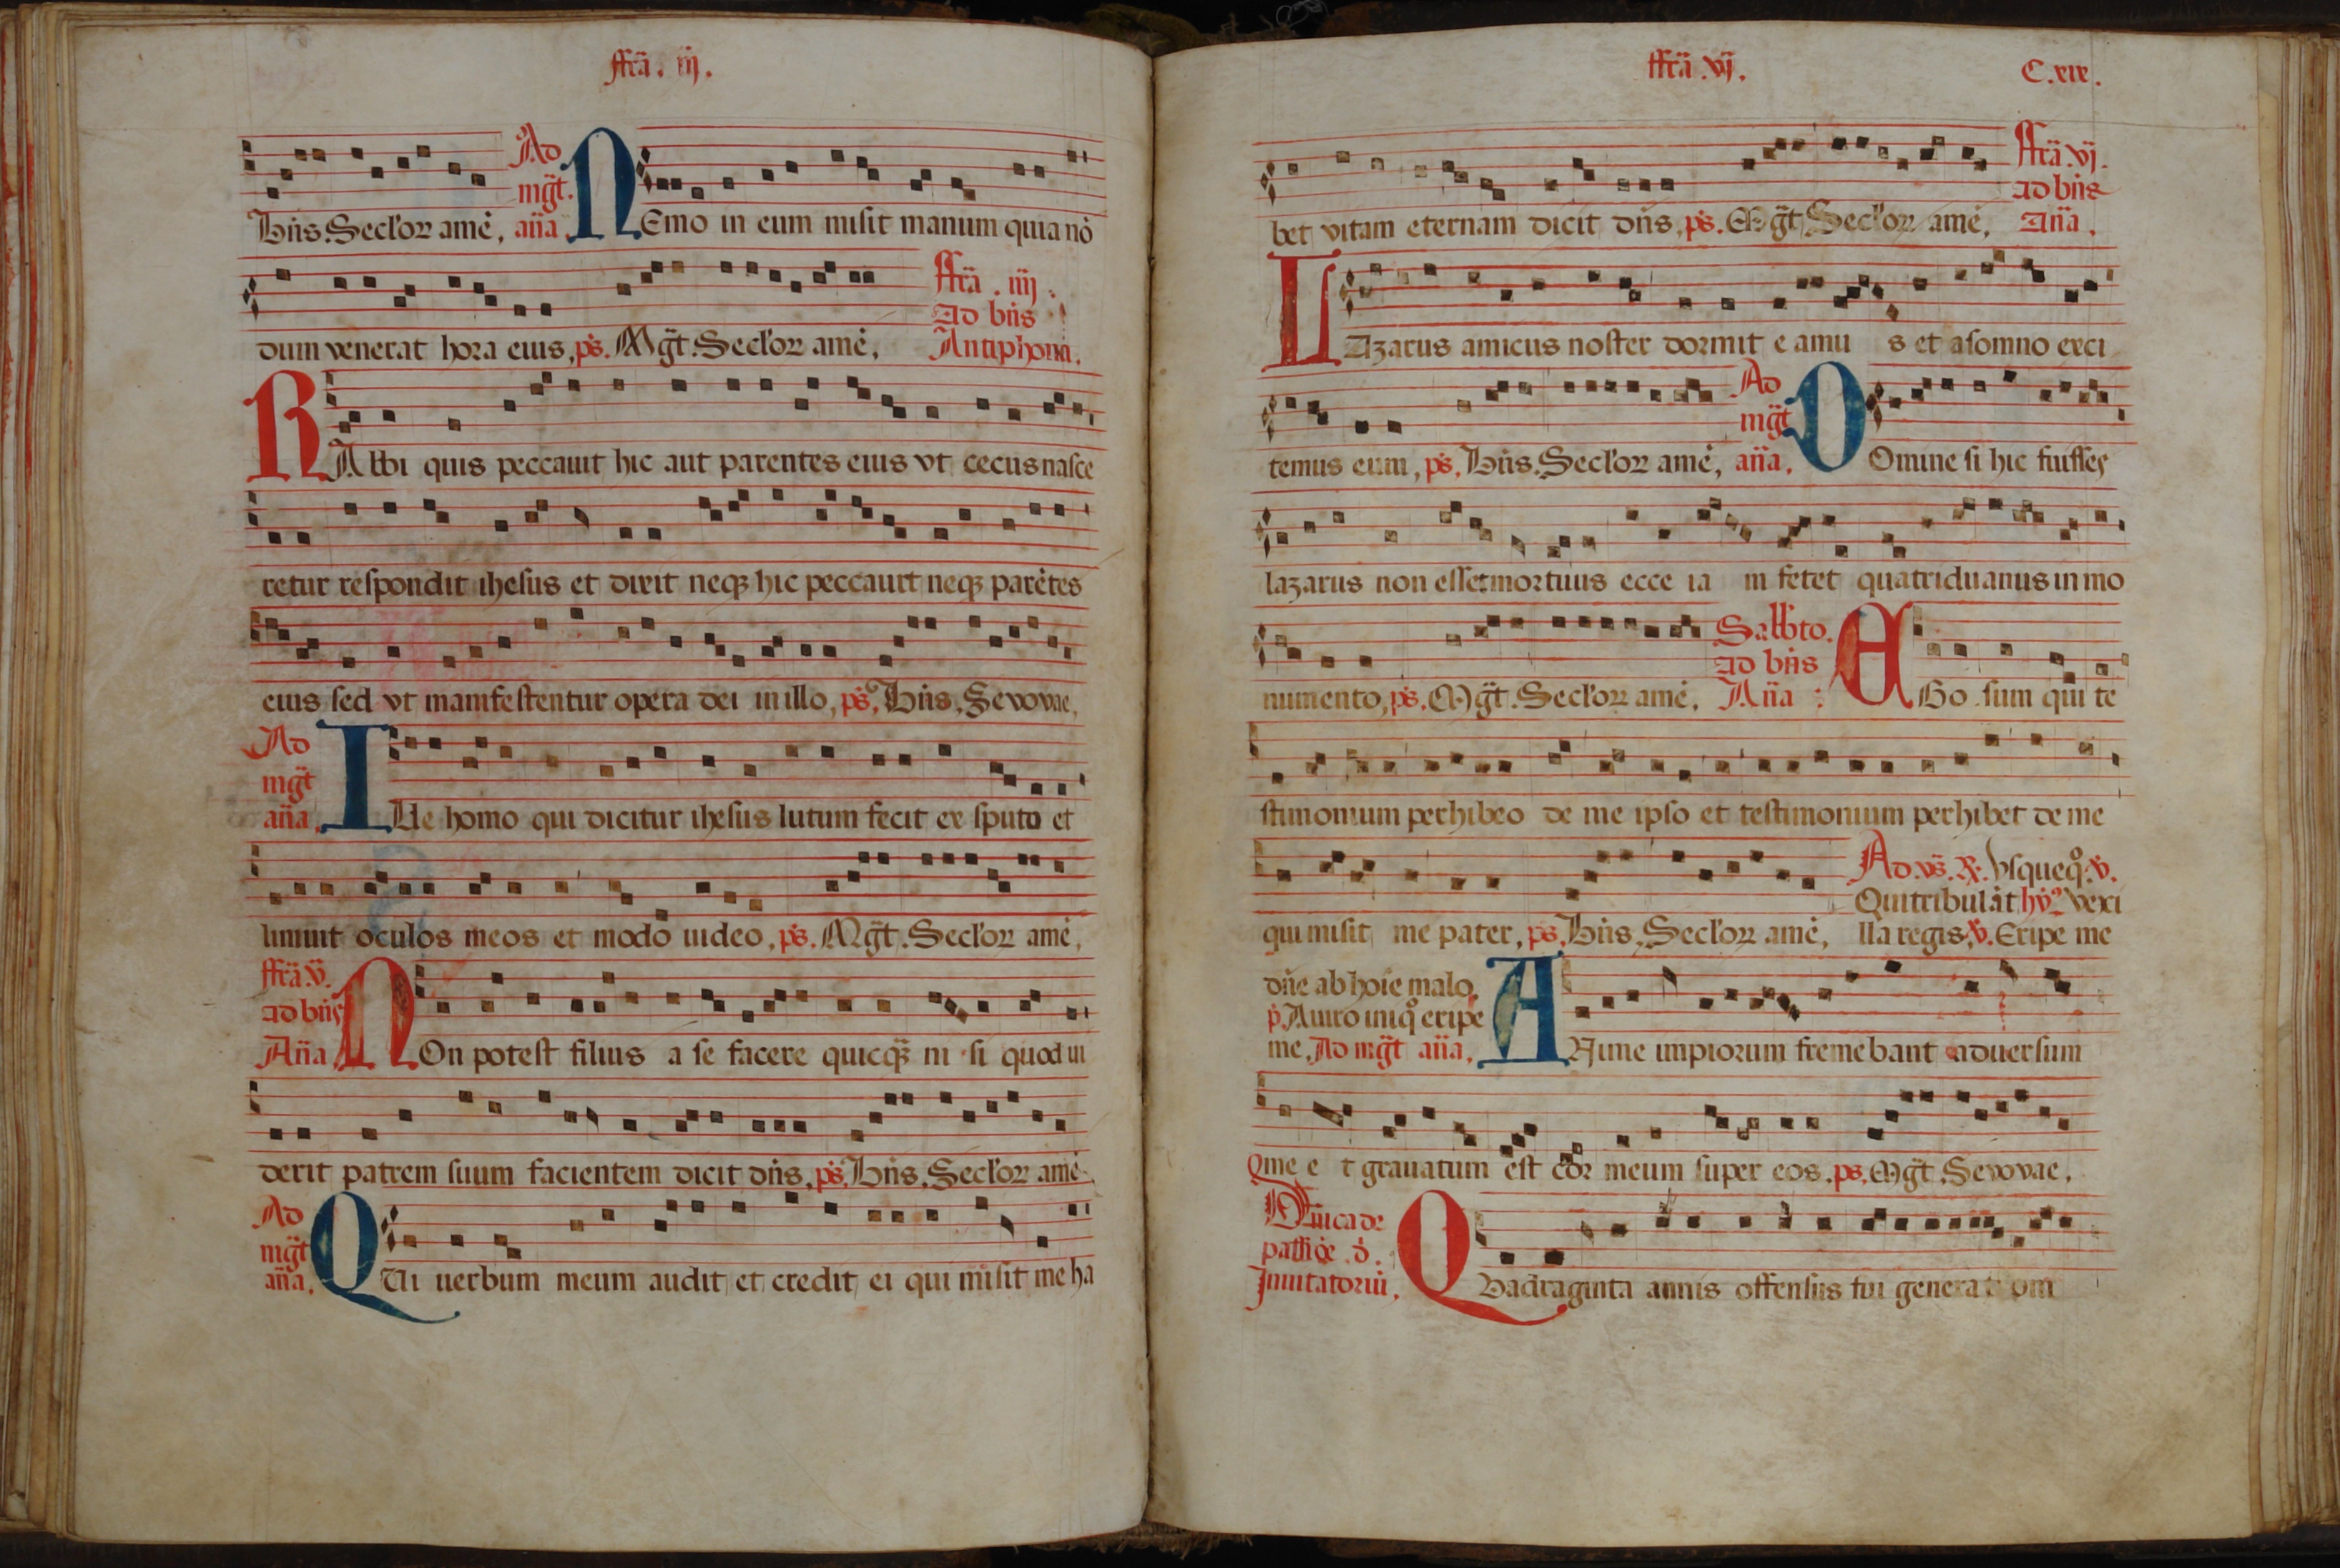 ffr̃a . iij .
Ad
mg̃t.
Bñs. Seclorꝝ amē, aña. NEmo in eum misit manum quia nō
ffr̃a . iiij .
Ad bñs
dum venerat hora eius, ps̃. Mg̃t. Seclorꝝ amē, Antiphona.
RAbbi quis peccauit hic aut parentes eius vt cecus nasce
retur respondit ihesus et dixit neqꝫ hic peccauit neqꝫ parētes
eius sed vt manifestentur opera dei in illo, ps̃. Bñs. Sevovae,
Ad
mg̃t
aña. ILle homo qui dicitur ihesus lutum fecit ex sputo et
liniuit oculos meos et modo uideo, ps̃. Mg̃t. Seclorꝝ amē,
ffr̃a. v̄.
ad bñs
Aña NOn potest filius a se facere quicqꝫ ni si quod ui
derit patrem suum facientem dicit dñs, ps̃. Bñs. Seclorꝝ amē.
Ad
mg̃t
aña. QUi uerbum meum audit et credit ei qui misit me ha
ffr̃a . vj .
C. xix .
ffr̃a vj .
ad bñs
bet vitam eternam dicit dñs, ps̃. Mg̃t Seclorꝝ amē, Aña .
LAzarus amicus noster dormit e amu s et a somno exci
Ad
mg̃t
temus eum, ps̃. Bñs. Seclorꝝ amē, aña. DOmine si hic fuisses
lazarus non esset mortuus ecce ia m fetet quatriduanus in mo
Sabbto.
ad bñs
numento, ps̃. Mg̃t. Seclorꝝ amē. Aña : EGo sum qui te
stimonium perhibeo de me ipso et testimonium perhibet de me
Ad. vs̃. R. Vsquequo. v̄.
Qui tribulāt hỹ. vexi
qui misit me pater, ps̃. Bñs, Seclorꝝ amē, lla regis, v̄. Eripe me
dñe ab hoīe malo,
p̄ A uiro iniqo eripe
me. Ad mg̃t aña. ANime impiorum fremebant aduersum
me e t grauatum est cor meum super eos. ps̃. Mg̃t. Sevovae,
Dñica de
passiōe . d̄ .
Inuitatoriū. QVadraginta annis offensus fui generationi